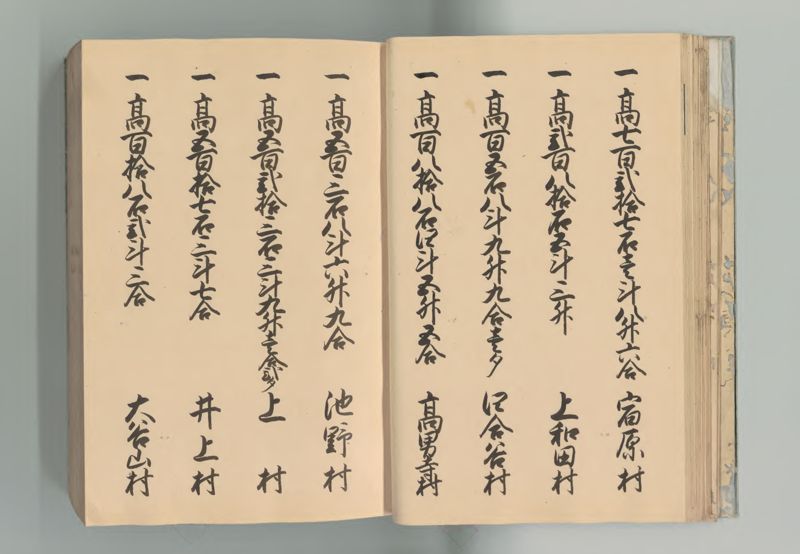 一高七百弐拾七石壱斗八升六合 宿原村
一高弐百八拾石五斗三升 上和田村
一高百五石八斗九升九合壱夕 河合谷村
一高百八拾八石四斗五升五合 高男寺村
一高五百三石八斗六升九合 池野村
一高五百弐拾三石三斗九升壱合弐夕 上村
一高五百拾七石三斗七合 井上村
一高百拾八石弐斗三合 大谷山村